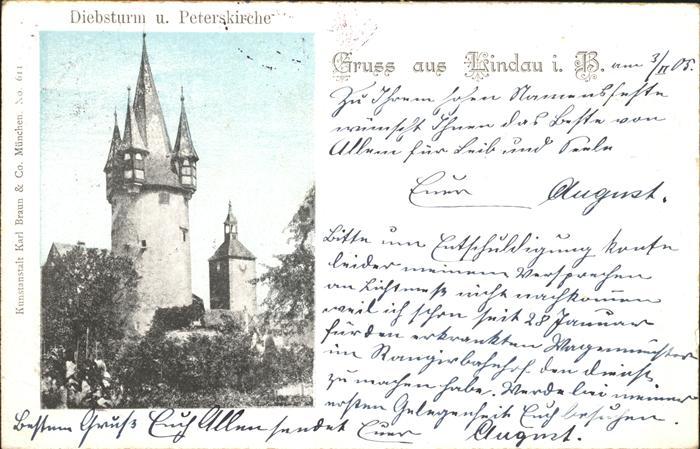 Diebsturm u. Peterskirche
Kunstanstalt Karl Braun & Co. München. No. 611
Gruss aus Lindau i. B. am 3/II 05.
Zu Ihrem hohen Namensfeste
wünscht Ihnen das Beste von
Allem für Leib und Seele
Euer August.
Bitte um Entschuldigung konte
leider meinem Versprechen
an Lichtmeß nicht nachkommen
weil ich schon seit 28 Januar
für den erkrankten Wagenmeister
im Rangirbahnhof den dienst
zu machen habe. Werde bei meiner
ersten Gelegenheit Euch besuchen.
Bestem Gruß Euch Allen sendet Euer August.